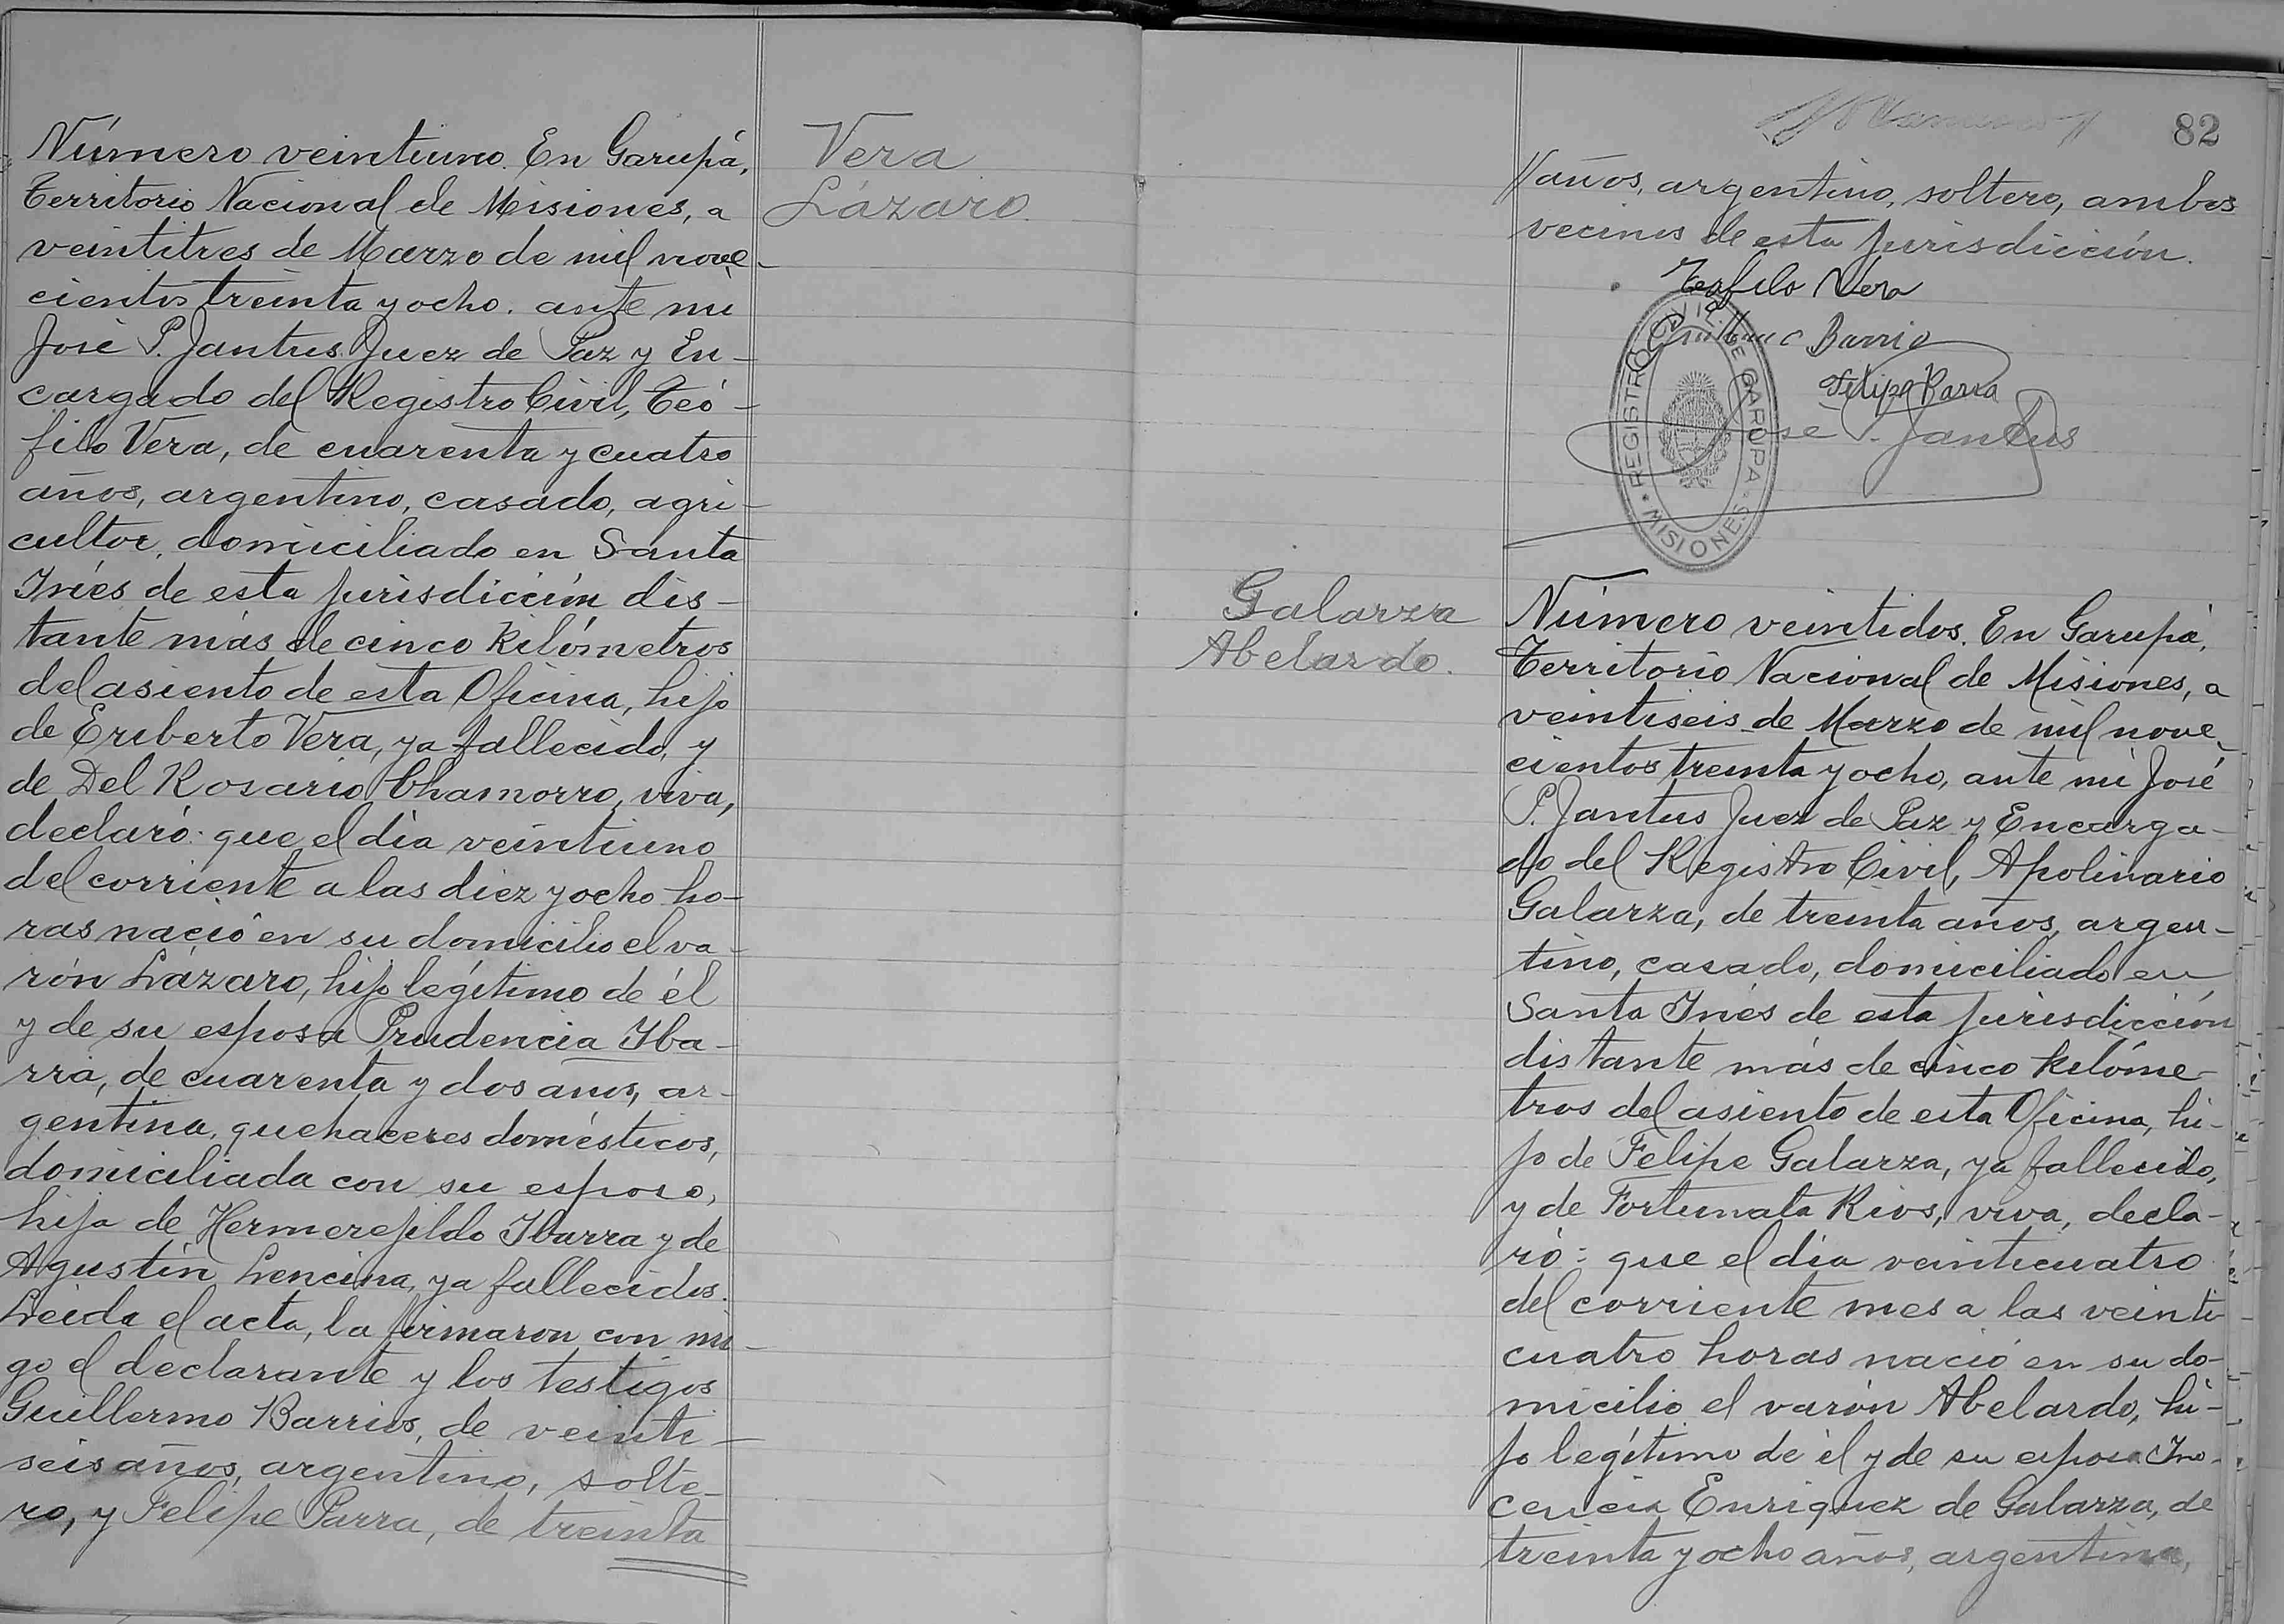 Número veintiuno. En Garupá,
Territorio Nacional de Misiones, a
veintitres de Marzo de mil nove-
cientos treinta y ocho. ante mi
José P. Jantus Juez de Paz y En-
cargado del Registro Civil, Teó-
filo Vera, de cuarenta y cuatro
años, argentino, casado, agri-
cultor, domiciliado en Santa
Inés de esta jurisdicción dis-
tante más de cinco kilómetros
del asiento de esta Oficina, hijo
de Eriberto Vera, ya fallecido, y
de Del Rosario Chamorro, viva,
declaró: que el día veintiuno
del corriente a las diez y ocho ho-
ras nació en su domicilio el va-
rón Lázaro, hijo legítimo de él
y de su esposa Prudencia Iba-
rra, de cuarenta y dos años, ar-
gentina, quehaceres domésticos,
domiciliada con su esposo,
hija de Hermerejildo Ibarra y de
Agustín Lencina, ya fallecidos.
Leída el acta, la firmaron con mi-
go el declarante y los testigos
Guillermo Barrios, de veinti-
seis años, argentino, solte-
ro, y Felipe Parra, de treinta
Vera
Lázaro.
82
años, argentino, soltero, ambos
vecinos de esta jurisdicción.
Teofilo Vera
Barrio
Felipe Parra
José P. Jantus
REGISTRO CIVIL DE GARUPA
MISIONES
Galarza
Abelardo.
Número veintidos. En Garupá,
Territorio Nacional de Misiones, a
veintiseis de Marzo de mil nove-
cientos treinta y ocho, ante mi José
P. Jantus Juez de Paz y Encarga-
do del Registro Civil, Apolinario
Galarza, de treinta años, argen-
tino, casado, domiciliado en
Santa Inés de esta jurisdicción
distante más de cinco kilóme-
tros del asiento de esta Oficina, hi-
jo de Felipe Galarza, ya fallecido,
y de Fortunata Rios, viva, decla-
ró: que el día veinticuatro
del corriente mes a las veinti
cuatro horas nació en su do-
micilio el varón Abelardo, hi-
jo legítimo de él y de su esposa Ino-
cencia Enriquez de Galarza, de
treinta y ocho años, argentina,